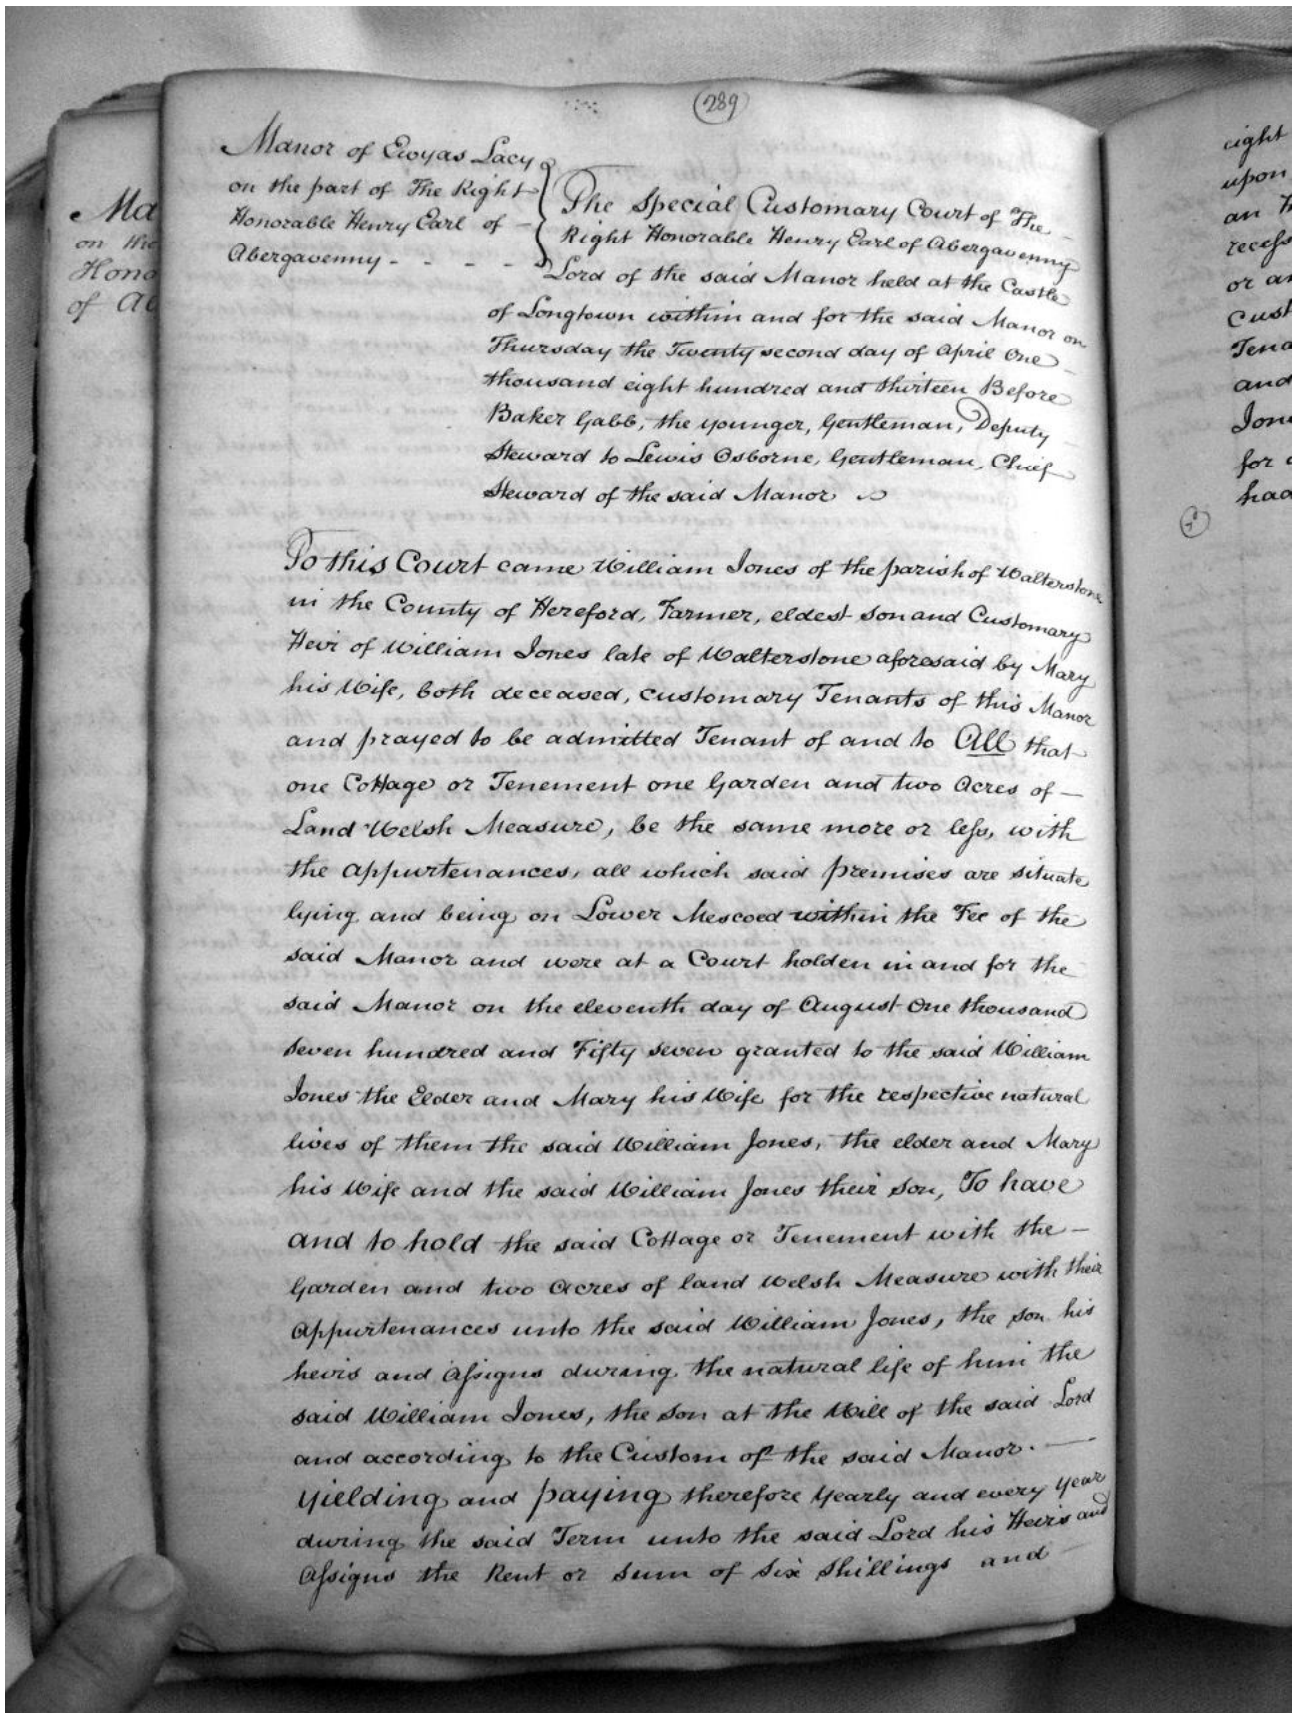 (289)
Manor of Ewyas Lacy
on the part of The Right
Honorable Henry Earl of –
Abergavenny - - - -
The Special Customary Court of The
Right Honorable Henry Earl of Abergavenny
Lord of the said Manor held at the Castle
of Longtown within and for the said Manor on
Thursday the Twenty second day of April One
thousand eight hundred and thirteen Before
Baker Gabb, the younger, Gentleman, Deputy
Steward to Lewis Osborne, Gentleman, Chief
Steward of the said Manor
To this Court came William Jones of the parish of Walterstone
in the County of Hereford, Farmer, eldest son and Customary
Heir of William Jones late of Walterstone aforesaid by Mary
his Wife, both deceased, customary Tenants of this Manor
and prayed to be admitted Tenant of and to All that
one Cottage or Tenement one Garden and two Acres of –
Land Welsh Measure, be the same more or less, with
the appurtenances, all which said premises are situate
lying and being on Lower Mescoed within the Fee of the
said Manor and were at a Court holden in and for the
said Manor on the eleventh day of August One thousand
seven hundred and Fifty seven granted to the said William
Jones the Elder and Mary his Wife for the respective natural
lives of them the said William Jones, the elder and Mary
his Wife and the said William Jones their son, To have
and to hold the said Cottage or Tenement with the –
Garden and two Acres of land Welsh Measure with their
appurtenances unto the said William Jones, the son his
heirs and Assigns during the natural life of him the
said William Jones, the son at the Will of the said Lord
and according to the Custom of the said Manor. –
yielding and paying therefore yearly and every year
during the said Term unto the said Lord his Heirs and
Assigns the Rent or Sum of Six Shillings and –
Ma
on the
Hono
of Ab
eight
upon
an
recess
or an
Cust
Tena
and
Jone
for
had